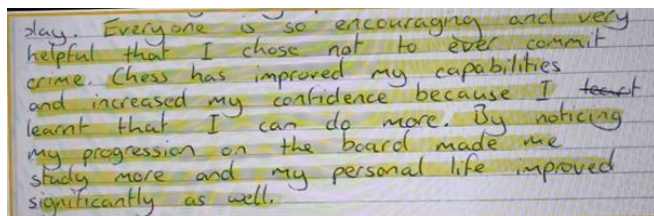 play. Everyone is so encouraging and very
helpful that I chose not to ever commit
crime. Chess has improved my capabilities
and increased my confidence because I
learnt that I can do more. By noticing
my progression on the board made me
study more and my personal life improved
significantly as well.